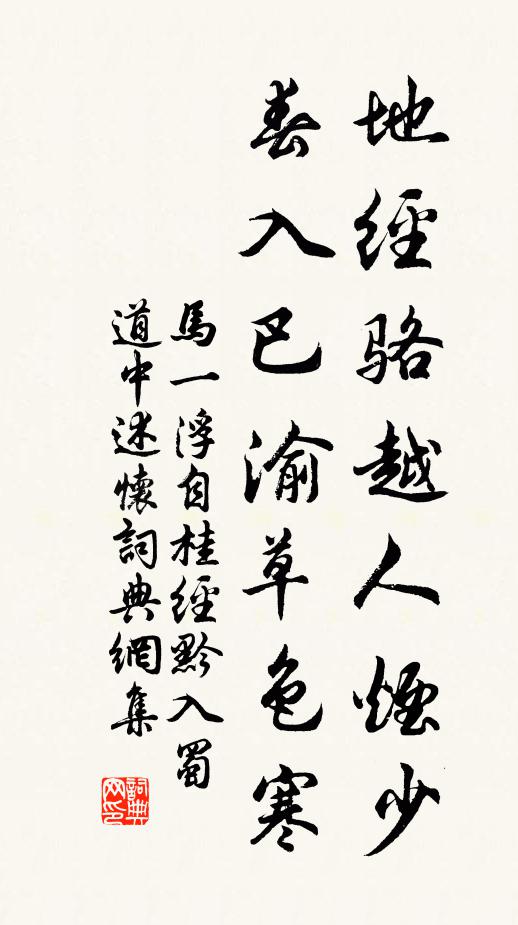 地經骆越人煙少
春入巴渝草色寒
馬一浮自桂經黔入蜀
道中述懷詞典網集
詞典
网印